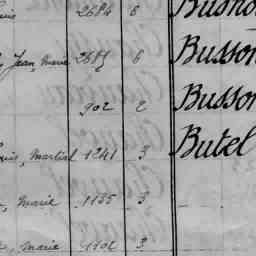 2684 6
Jean, Marie 2685 6 Busson
902 2 Busson
Martial 1241 3 Butel
Marie 1135 3
Marie 1102 3